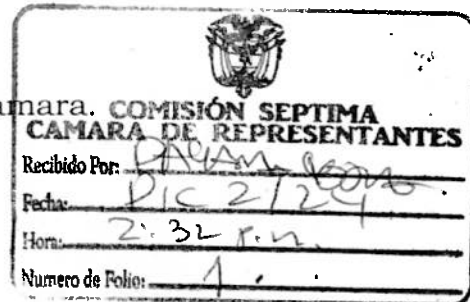 amara. COMISIÓN SEPTIMA
CAMARA DE REPRESENTANTES
Recibido Por:
Fecha: DIC 2/24
Hora: 2:32 p.m.
Numero de Folio: 1.